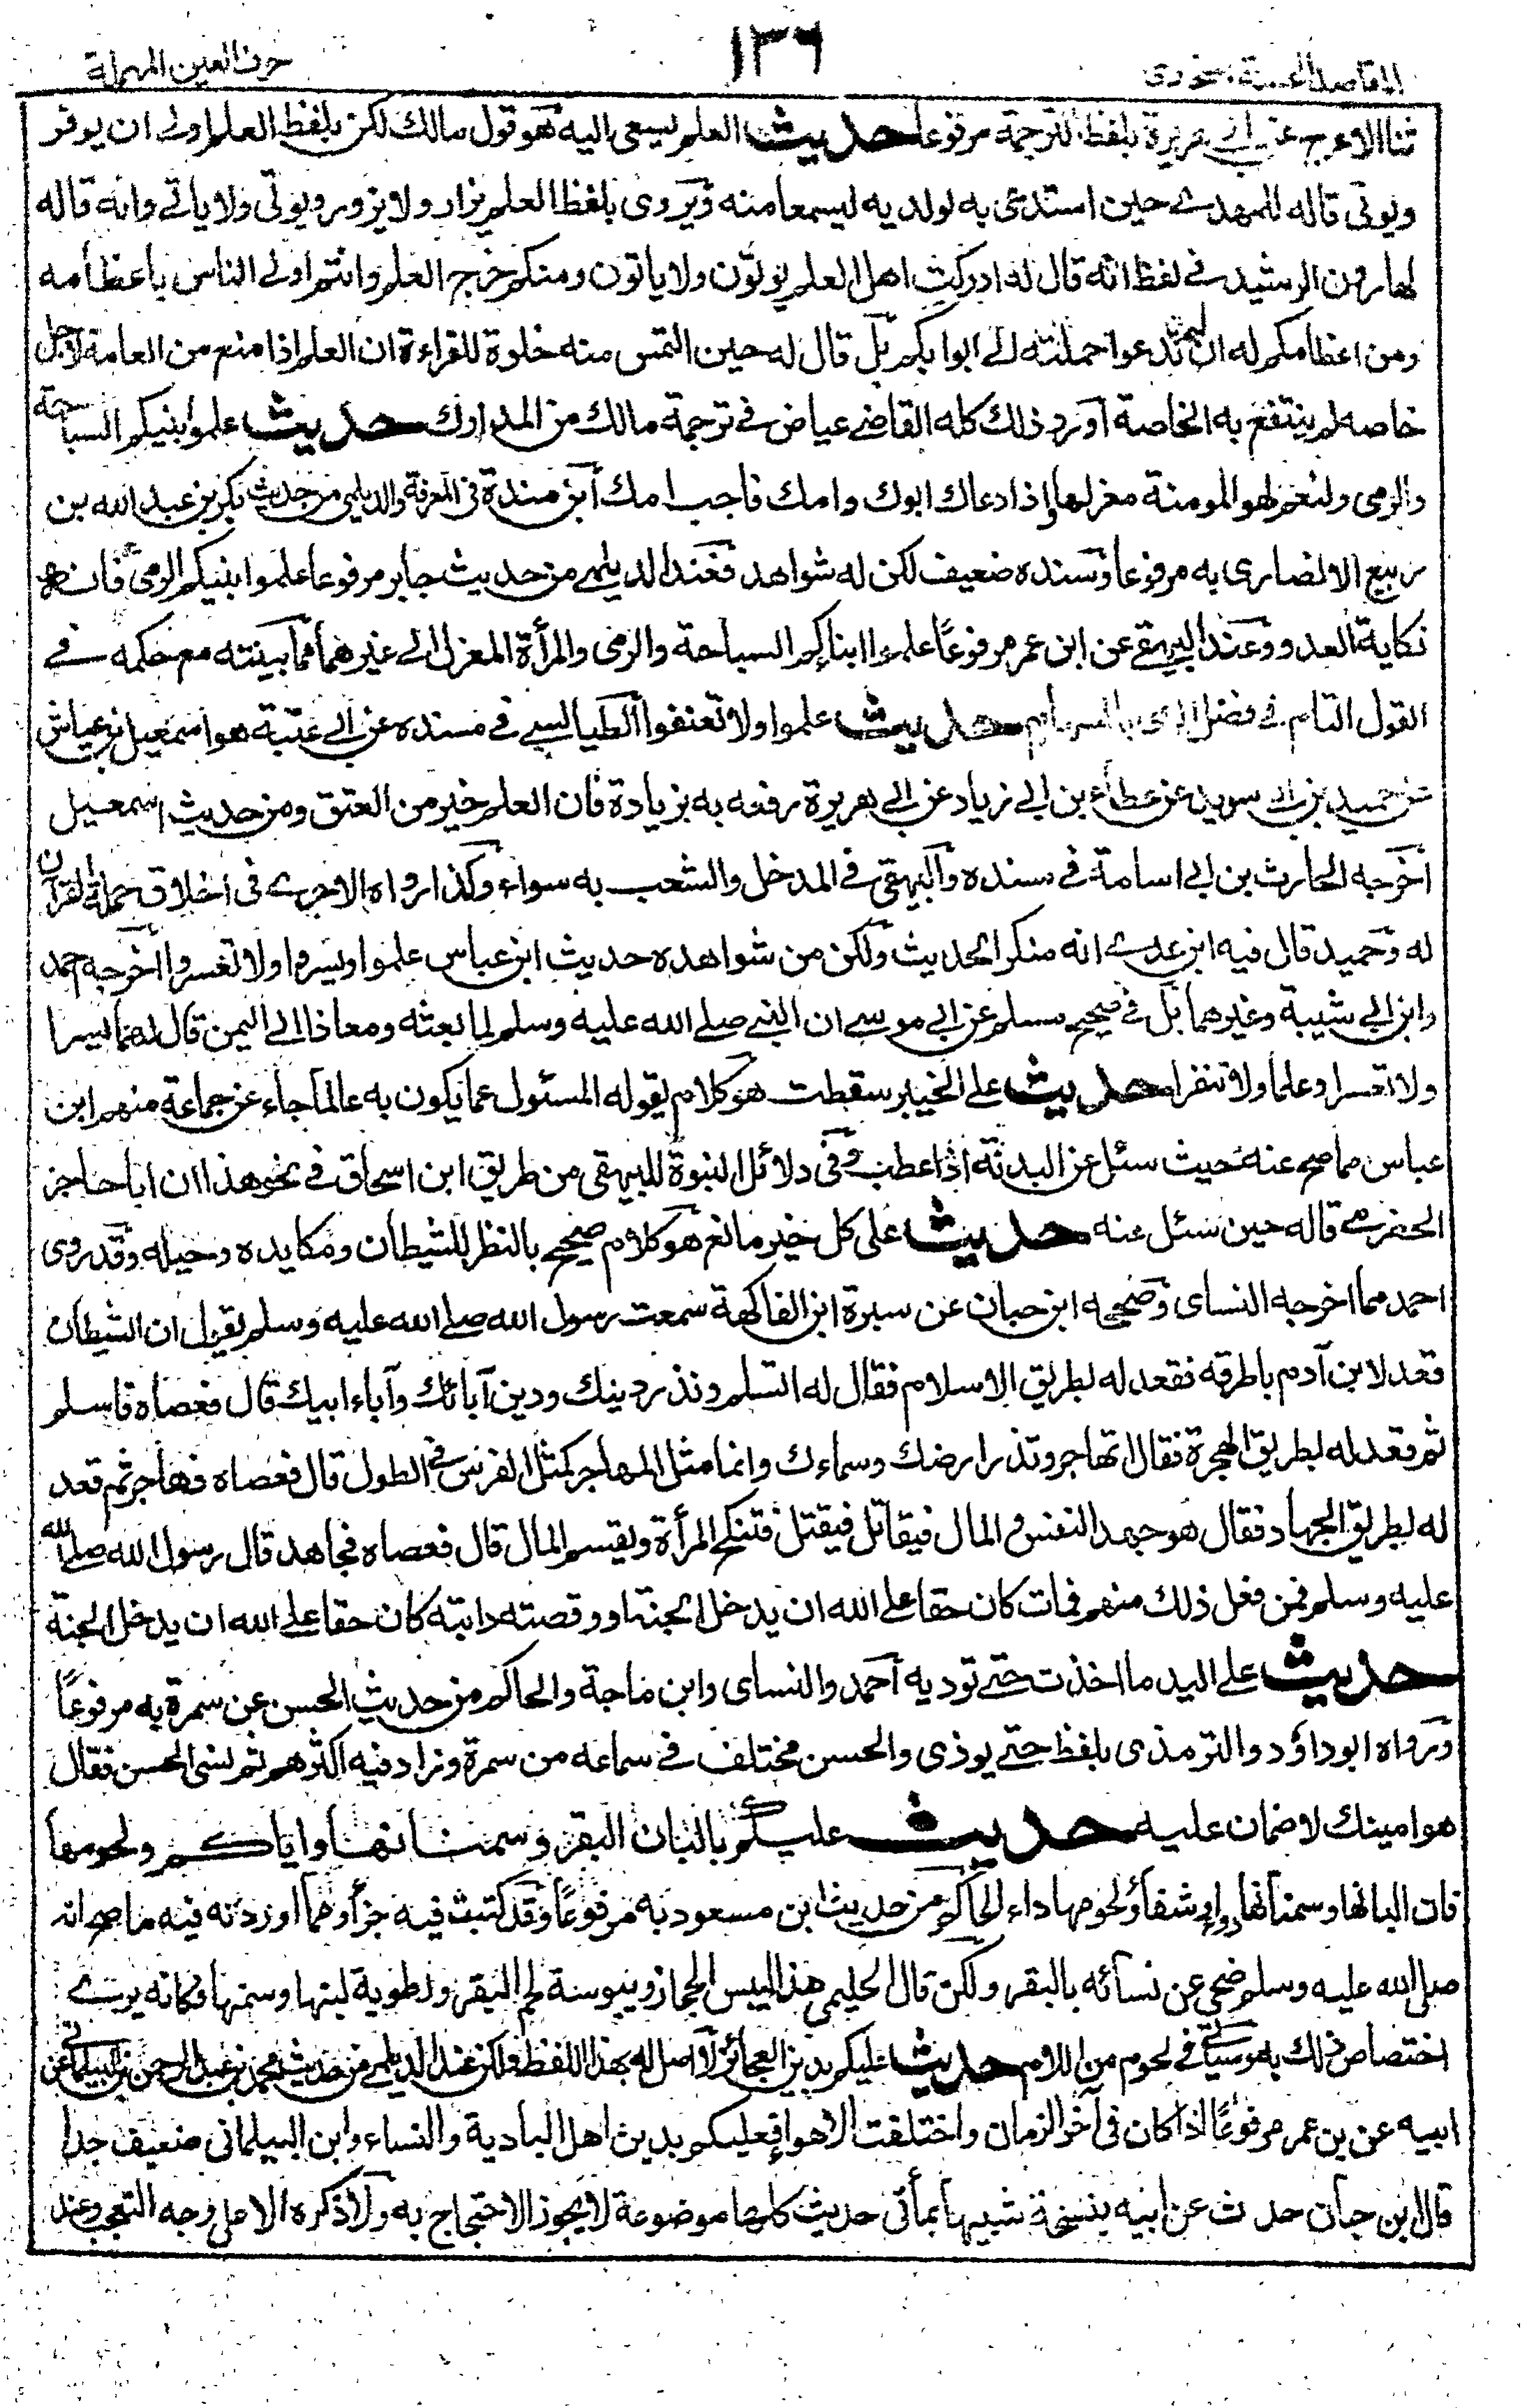 المقاصد الحسنة سخاوى
١٣٦
حرف العين المهملة
ثنا الاعرج عن ابى هريرة بلفظ الترجمة مرفوعا حديث العلم يسعى اليه هو قول مالك لكن بلفظ العلم اولى ان يوقر
ويوتى قاله للمهدى حين استدعى به لولديه ليسمعا منه ويروى بلفظ العلم يزار ولا يزور ويوتى ولا ياتى وانه قاله
لهارون الرشيد فى لفظ انه قال له ادركت اهل العلم يوتون ولا ياتون ومنكم خرج العلم وانتم اولى الناس باعظامه
ومن اعظامكم له ان لا تدعوا حملته الى ابوابكم بل قال له حين التمس منه خلوة للقراءة ان العلم اذا منع من العامة لاجل
خاصه لم ينتفع به الخاصة اورد ذلك كله القاضى عياض فى ترجمة مالك من المدارك حديث علموا بنيكم السباحة
والرمى ولنعم لهو المومنة مغزلها واذا دعاك ابوك وامك فاجب امك ابن مندة فى المعرفة والديلمى من حديث بكر بن عبد الله بن
ربيع الانصارى به مرفوعا وسنده ضعيف لكن له شواهد فعند الديلمى من حديث جابر مرفوعا علموا بنيكم الرمى فانه
نكاية العدو وعند البيهقى عن ابن عمر مرفوعًا علموا ابناكم السباحة والرمى والمرأة المغزل الى غيرهما مما بينته مع حكمه فى
القول التام فى فضل الرمى بالسهام حديث علموا ولا تعنفوا الطيالسى فى مسنده عن ابى عتبة هو اسمعيل بن عياش
عن حميد بن ابى سويد عن عطاء بن ابى زياد عن ابى هريرة رفعه به بزيادة فان العلم خير من العتق ومن حديث اسمعيل
اخرجه الحارث بن ابى اسامة فى سنده والبيهقى فى المدخل والشعب به سواء وكذا رواه الاجرى فى اخلاق حملة القرآن
له وحميد قال فيه ابن عدى انه منكر الحديث ولكن من شواهده حديث ابن عباس علموا ويسروا ولا تعسروا اخرجه احمد
وابن ابى شيبة وغيرهما بل فى صحيح مسلم عن ابى موسى ان النبى صلى الله عليه وسلم لما بعثه ومعاذا الى اليمن قال لهما يسرا
ولا تعسرا وعلما ولا تنفرا حديث على الخبير سقطت هو كلام يقوله المسئول عما يكون به عالما جاء عن جماعة منهم ابن
عباس مما صح عنه حيث سئل عن البدنة اذا عطب وفى دلائل النبوة للبيهقى من طريق ابن اسحاق فى نحو هذا ان ابا حاجز
الحضرمى قاله حين سئل عنه حديث على كل خير مانع هو كلام صحيح بالنظر للشيطان ومكايده وحيله وقد روى
احمد مما اخرجه النساى وصححه ابن حبان عن سبرة ابن الفاكهة سمعت رسول الله صلى الله عليه وسلم يقول ان الشيطان
قعد لابن آدم باطرقه فقعد له بطريق الاسلام فقال له اتسلم ونذر دينك ودين آبائك وآباء ابيك قال فعصاه فاسلم
ثم قعد له بطريق الهجرة فقال تهاجر وتذر ارضك وسماءك وانما مثل المهاجر كمثل الفرس فى الطول قال فعصاه فهاجر ثم قعد
له بطريق الجهاد فقال هو جهد النفس والمال فيقاتل فيقتل فتنكح المرأة ويقسم المال قال فعصاه فجاهد قال رسول الله صلى الله
عليه وسلم فمن فعل ذلك منهم فمات كان حقا على الله ان يدخل الجنة او وقصته دابته كان حقا على الله ان يدخل الجنة
حديث على اليد ما اخذت حتى توديه احمد والنساى وابن ماجة والحاكم من حديث الحسن عن سمرة به مرفوعًا
ورواه ابو داؤد والترمذى بلفظ حتى يوذى والحسن مختلف فى سماعه من سمرة وزاد فيه اكثرهم ثم نسى الحسن فقال
هو امينك لا ضمان عليه حديث عليكم بالبان البقر وسمنانها واياكم ولحومها
فان البانها وسمنانها دواء وشفاء ولحومها داء الحاكم من حديث ابن مسعود به مرفوعًا وقد كتبت فيه جزأ ومما اوردته فيه ما صح انه
صلى الله عليه وسلم ضحى عن نسائه بالبقر ولكن قال الحليمى هذا ليبس الحجاز ويبوسة لحم البقر ورطوبة لبنها وسمنها فكانه يرى
اختصاص ذلك به وسياتى فى لحوم من اللام حديث عليكم بدين العجائز لا اصل له بهذا اللفظ ولكن عند الديلمى من حديث محمد بن عبد الرحمن بن البيلمانى عن
ابيه عن بن عمر مرفوعًا اذا كان فى آخر الزمان واختلفت الاهواء فعليكم بدين اهل البادية والنساء وابن البيلمانى ضعيف جدا
قال ابن حبان حدث عن ابيه بنسخة شبيها بمأتى حديث كلها موضوعة لا يجوز الاحتجاج به ولا ذكره الا على وجه التعجب وعند